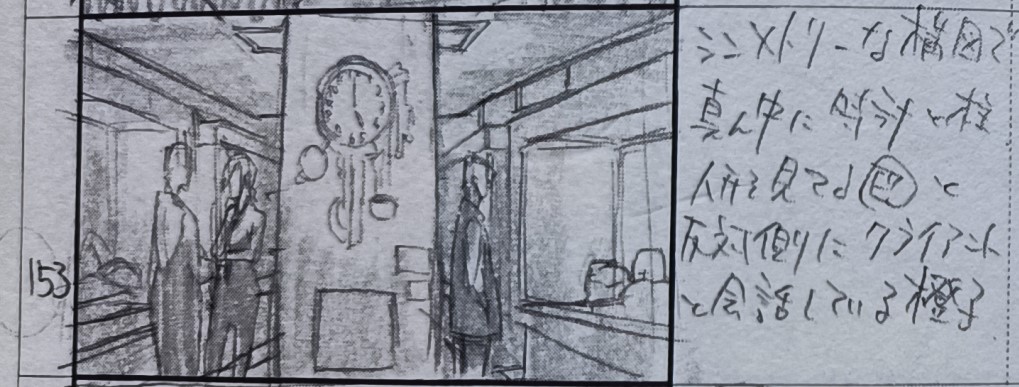 153
シンメトリーな構図で
真ん中に時計と柱
人形を見てる と
反対側にクライアント
と会話している橙子